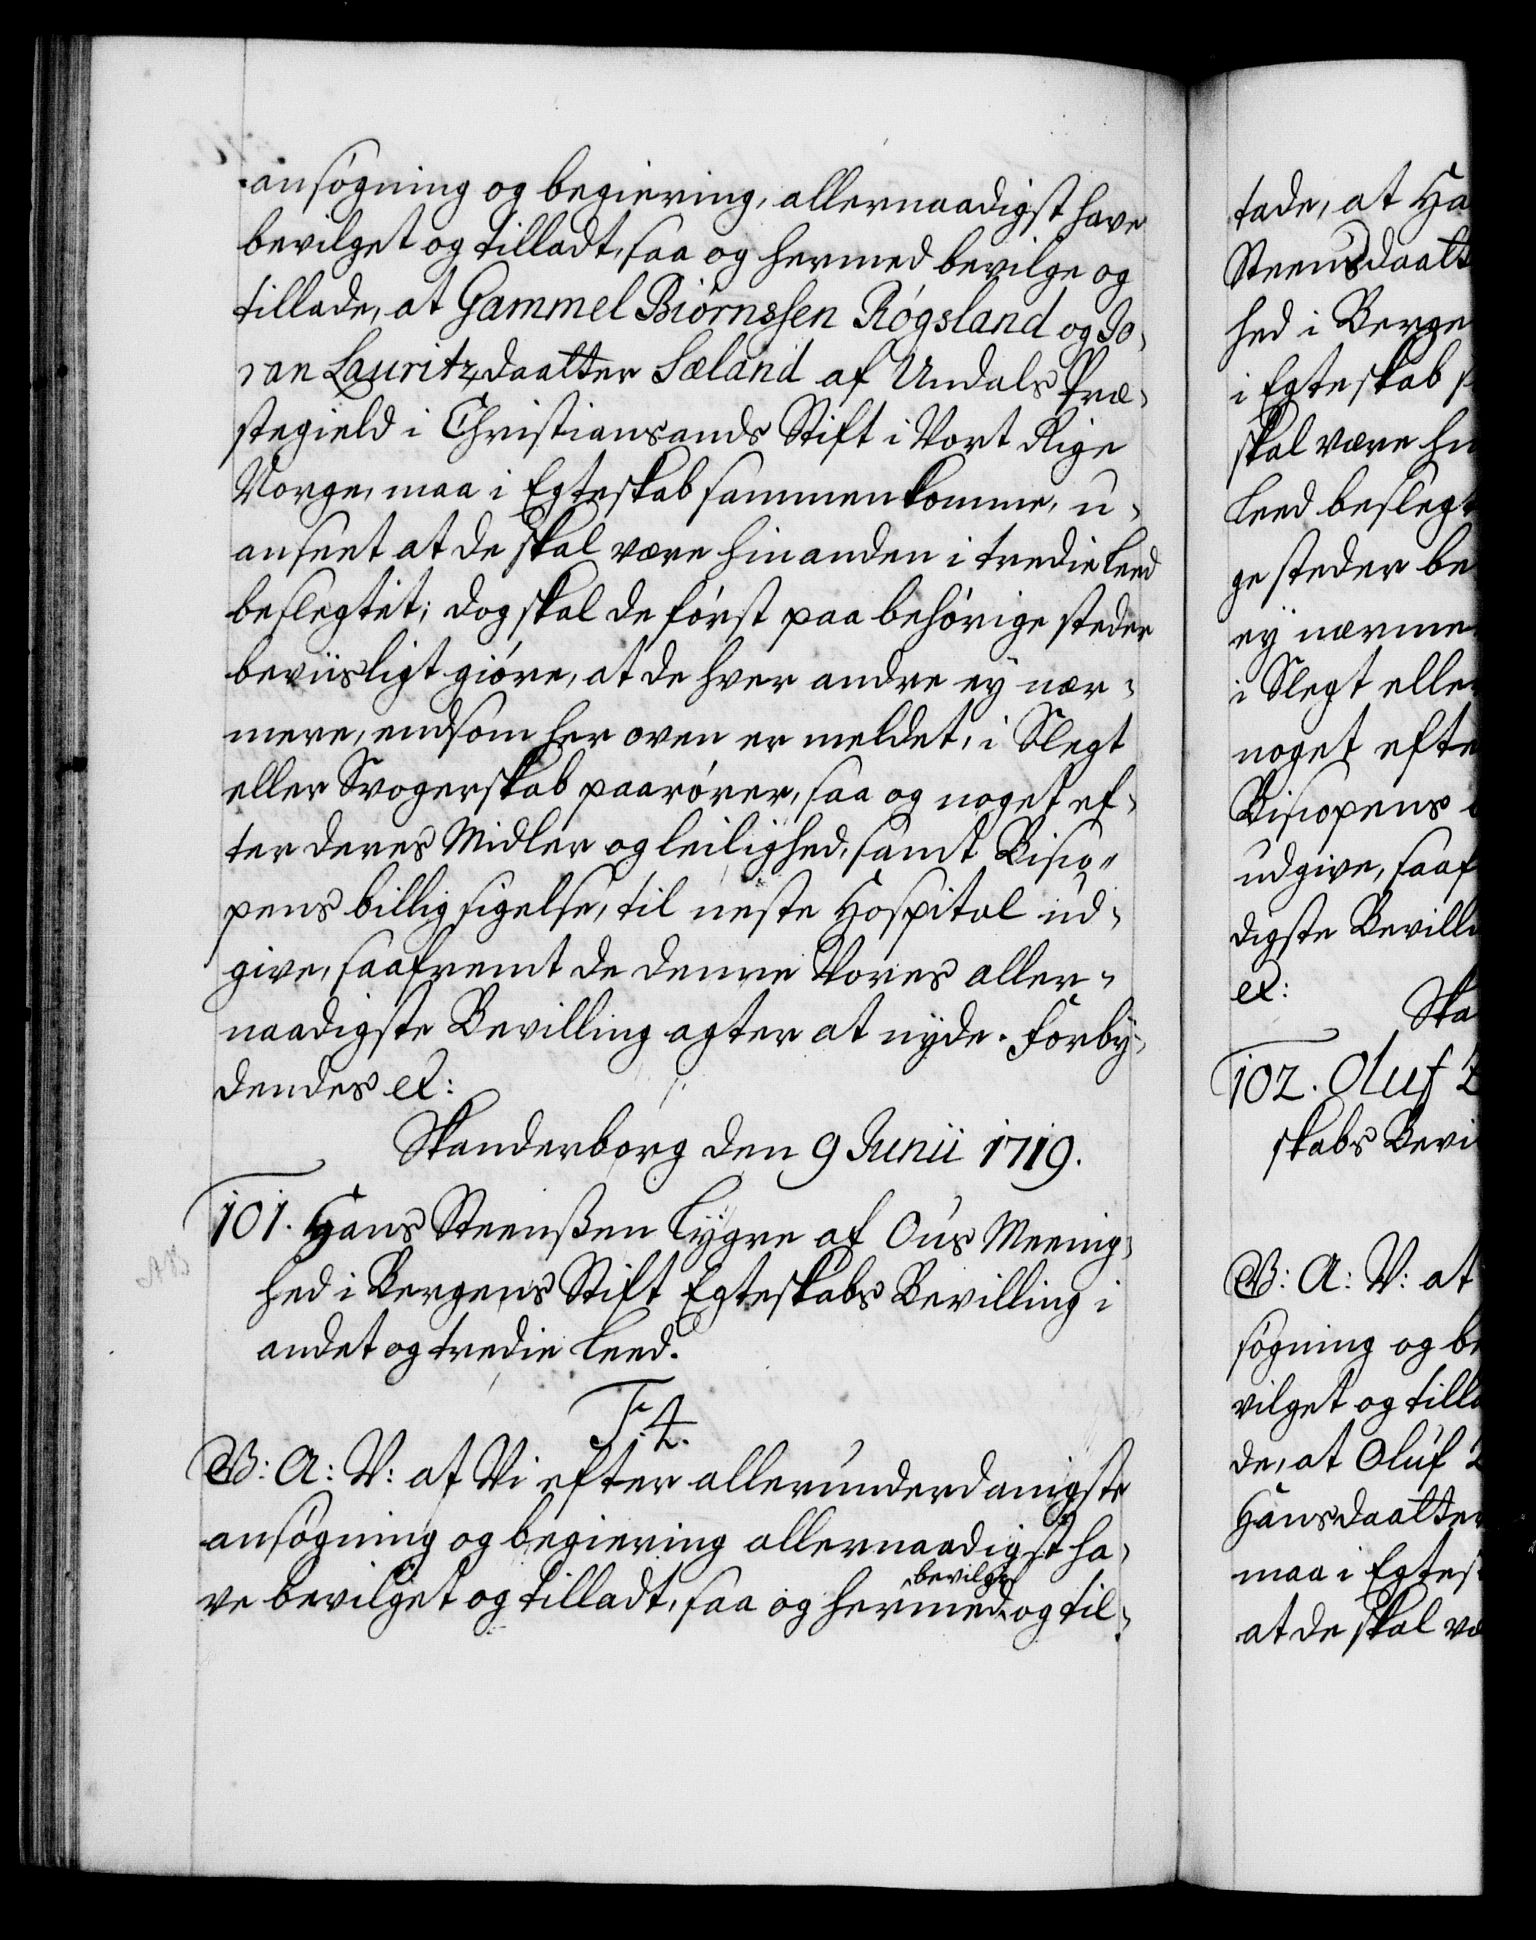 ansøgning og begiering, allernaadigst have
bevilget og tilladt, saa og hermed bevilge og
tillade, at Gammel Biørnssen Røgsland og Jo-
ran Lauritzdaatter Sæland af Undals Præ-
stegield i Christiansands Stift i Vort Rige
Norge, maa i Egteskab sammenkomme, u-
anseet at de skal være hinanden i tredie Leed
beslegtet; dog skal de først paa behørige steder
beviisligt giøre, at de hver andre ey nær-
mere, end som her oven er meldet, i Slegt
eller Svogerskab paarører, saa og noget ef-
ter deres Midler og leilighed, samt Bisio-
pens billig sigelse, til neste Hospital ud-
give, saafremt de denne Vores aller-
naadigste Bevilling agter at nyde. Forby-
dendes et:
Skanderborg den 9 Junii 1719.
101. Hans Steensßen Lygre af Ous Meenig-
hed i Bergens Stift Egteskabs Bevilling i
andet og tredie Leed.
F. 4.
G: A: V: at Vi efter allerunderdanigste
ansøgning og begiering allernaadigst ha-
ve bevilget og tilladt, saa og hermed bevilge og til-
tade, at Ha
Steensdaatt
hed i Berge
i Egteskab s
skal være hi
Leed beslegt
ge steder be
ey nærme
i Slegt elle
noget efte
Bisiopens
udgive, saaf
digste Bevilli
et:
Ska
102. Oluf
skabs Bevi
G: A: V: at
søgning og be
vilget og tilla
de, at Oluf
Hansdaatter
maa i Egtes
at de skal væ